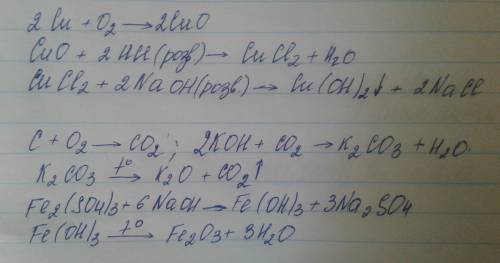 2Cu + O2 → 2CuO
CuO + 2HCl (розв) → CuCl2 + H2O
CuCl2 + 2NaOH (розв) → Cu(OH)2↓ + 2NaCl
C + O2 → CO2; 2KOH + CO2 → K2CO3 + H2O
K2CO3 t° → K2O + CO2↑
Fe2(SO4)3 + 6NaOH → Fe(OH)3 + 3Na2SO4
Fe(OH)3 t° → Fe2O3 + 3H2O